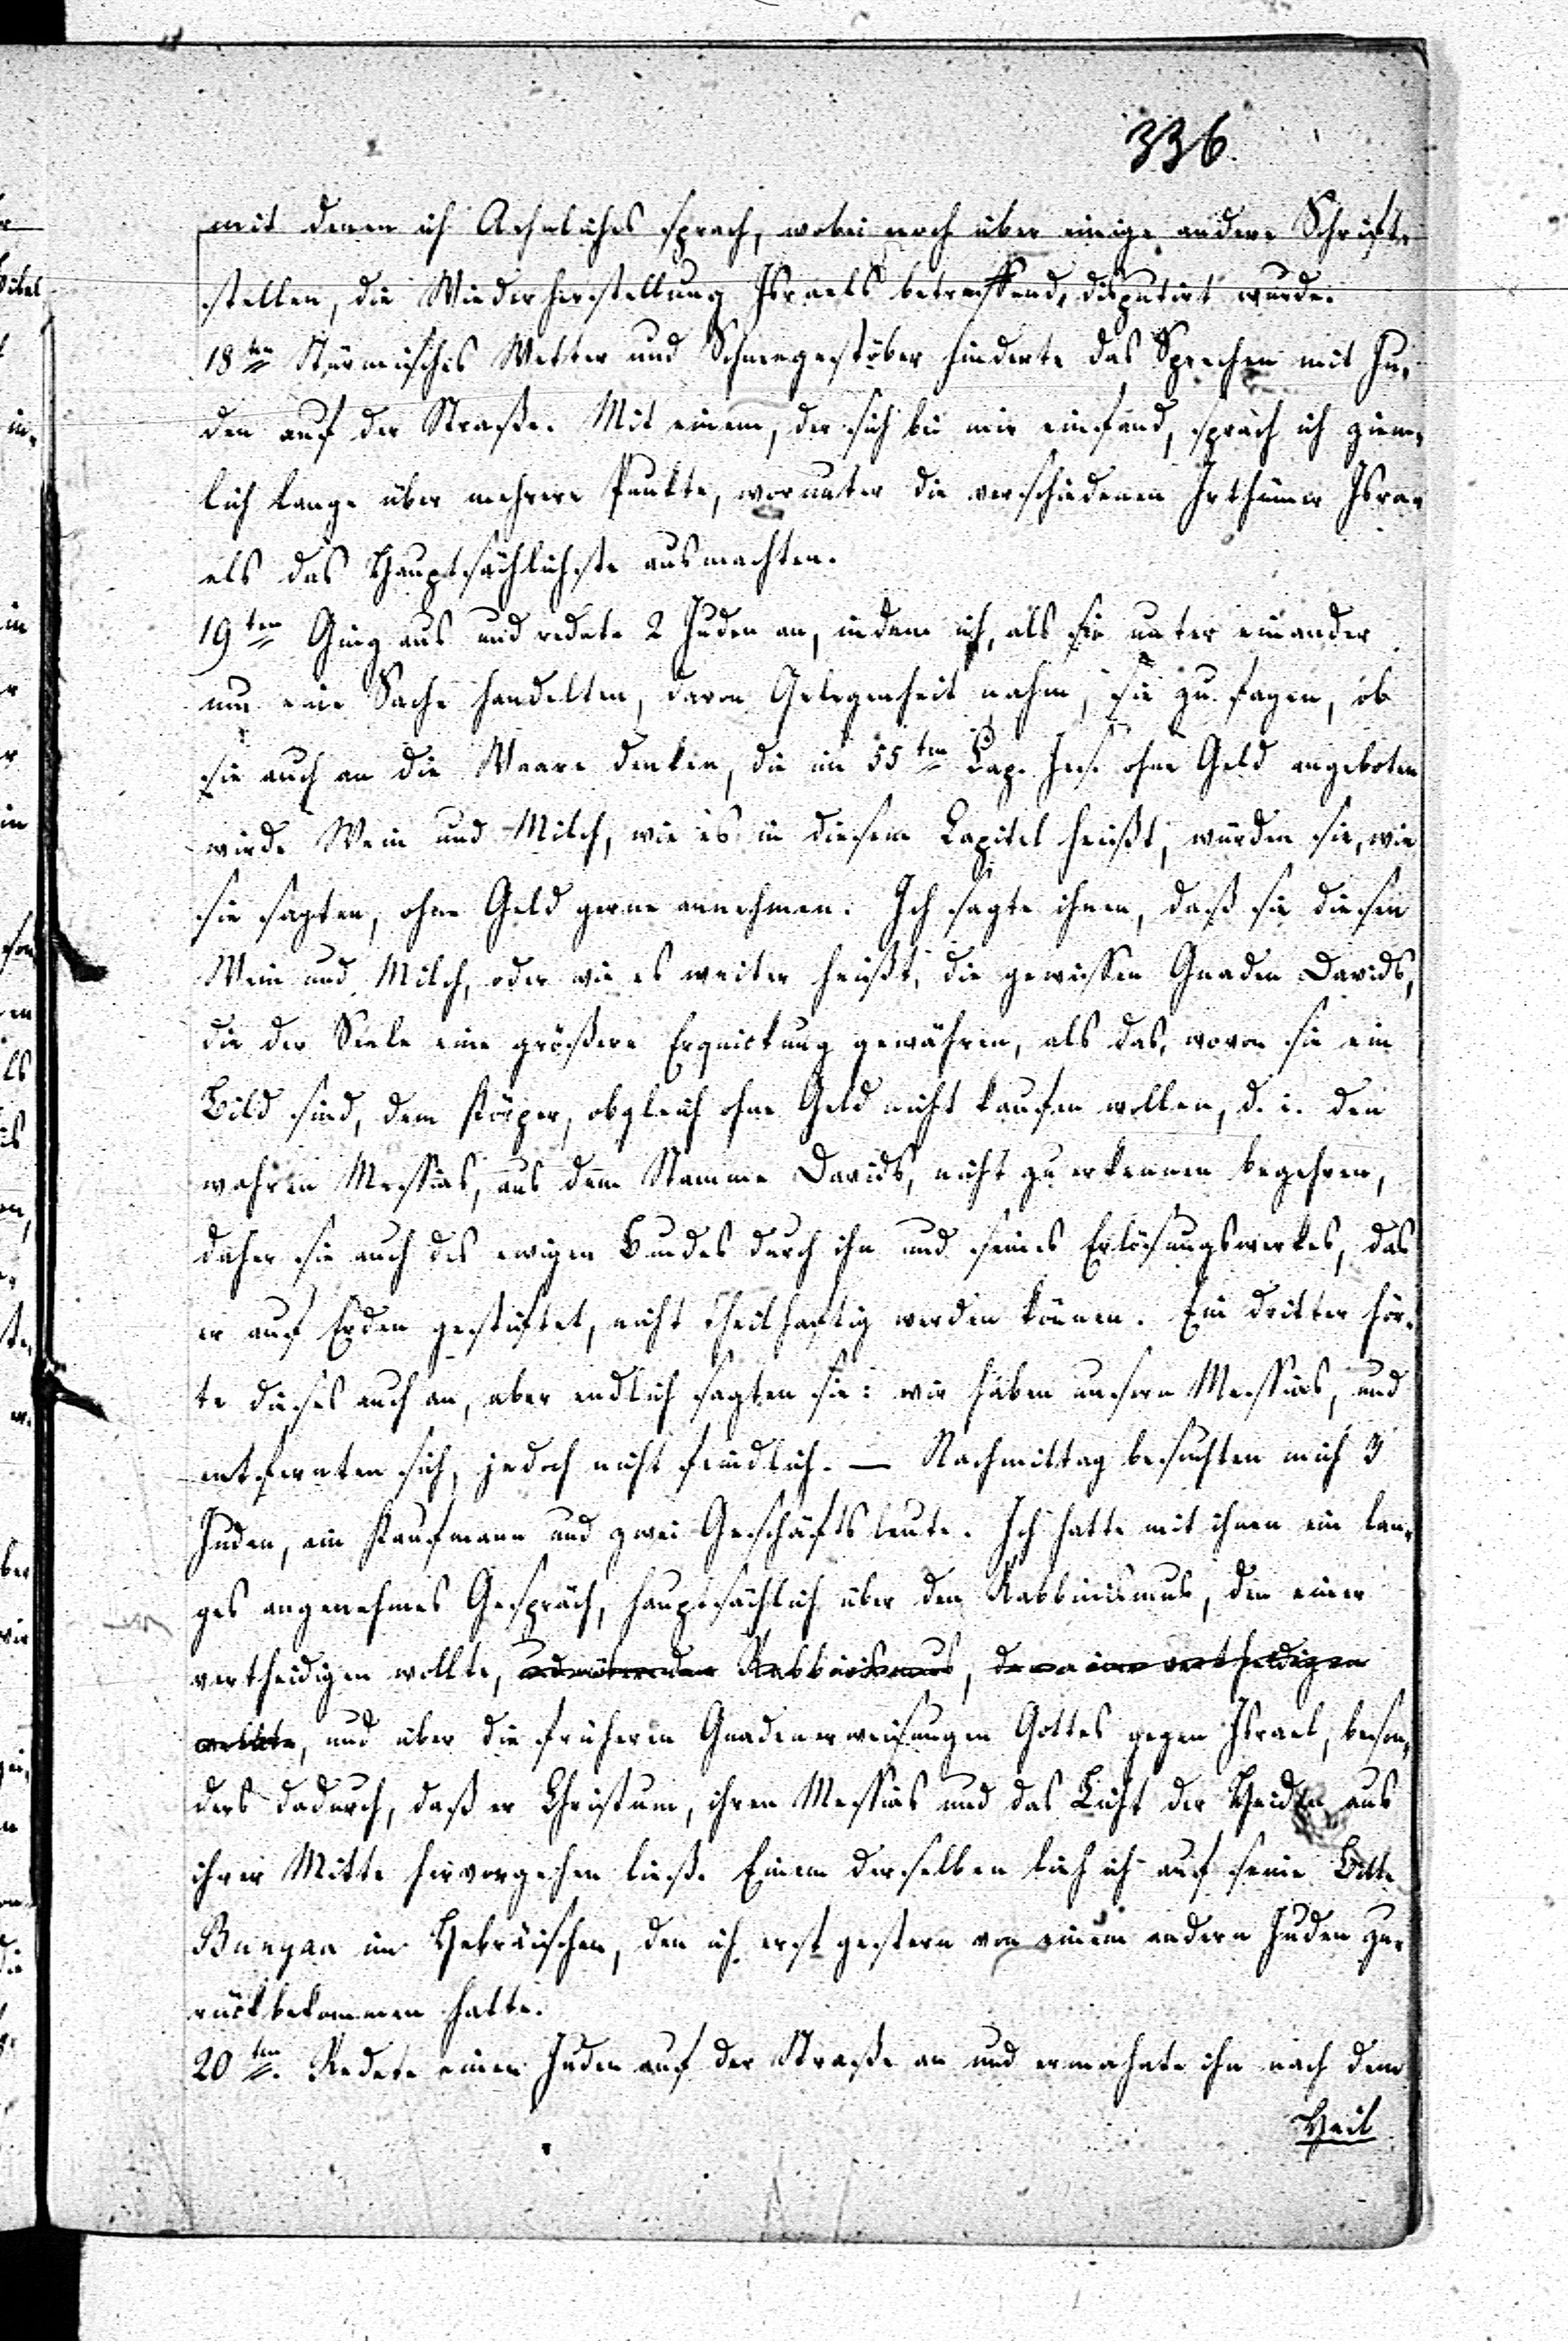 336.
mit denen ich Aehnliches sprach, wobei noch über einige andere Schrift-
stellen, die Wiederherstellung Israels betreffend, disputirt wurde.
18ten Stürmisches Wetter und Schneegestöber hinderte das Sprechen mit Ju-
den auf der Straße. Mit einem, der sich bei mir einfand, sprach ich ziem-
lich lange über mehrere Punkte, worunter die verschiedenen Irthümer Isra-
els das Hauptsächlichste ausmachten.
19ten Ging aus und redete 2 Juden an, indem ich, als sie unter einander
um eine Sache handelten, davon Gelegenheit nahm, sie zu fragen, ob
sie auch an die Waare denken, die im 55ten Cap. Jes. ohne Geld angeboten
wird. Wein und Milch, wie es in diesem Capitel heißt, würden sie, wie
sie sagten, ohne Geld gerne annehmen. Ich sagte ihnen, daß sie diesen
Wein und Milch, oder wie es weiter heißt, die gewissen Gnaden Davids,
die der Seele eine größere Erquickung gewähren, als das, wovon sie ein
Bild sind, dem Körper, obgleich ohne Geld nicht kaufen wollen, d. i. den
wahren Messias, aus dem Stamme Davids, nicht zu erkennen begehren,
daher sie auch des ewigen Bundes durch ihn und seines Erlösungswerkes, das
er auf Erden gestiftet, nicht theilhaftig werden können. Ein dritter hör-
te dieses auch an, aber endlich sagten sie: wir haben unsern Messias, und
entfernten sich, jedoch nicht feindlich. — Nachmittag besuchten mich 3
Juden, ein Kaufmann und zwei Geschäftsleute. Ich hatte mit ihnen ein lan-
ges angenehmes Gespräch, hauptsächlich über den Rabbinismus, den einer
vertheidigen wollte, und über den Rabbinismus, den einer vertheidigen
wollte, und über die früheren Gnadenerweisungen Gottes gegen Israel, beson-
ders dadurch, daß er Christum, ihren Messias und das Licht der Heiden aus
ihrer Mitte hervorgehen ließ. Einem derselben lieh ich auf seine Bitte
Bunyan im Hebräischen, den ich erst gestern von einem andern Juden zu-
rückbekommen hatte.
20ten. Redete einen Juden auf der Straße an und ermahnte ihn nach dem
Heil